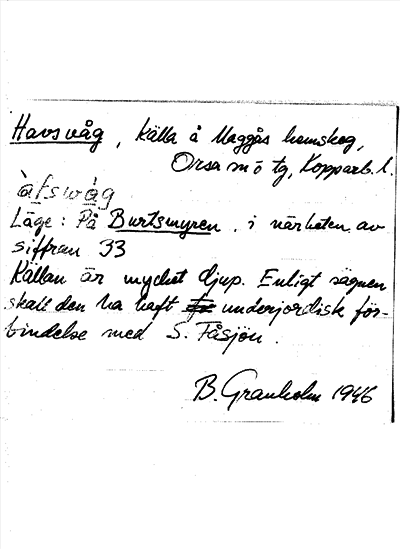 Havsvåg, källa å Maggås hemskog,
Orsa sn ö tg, Kopparb. l.
`afswåg
Läge: På Burtsmyren, i närheten av
siffran 33
Källan är mycket djup. Enligt sägnen
skall den ha haft underjordisk för-
bindelse med S. Fåsjön.
B. Granholm 1946